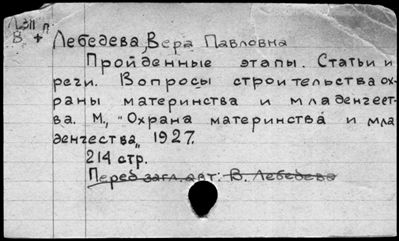 Л311 п
В +
Лебедева, Вера Павловна
Пройденные этапы. Статьи и
речи. Вопросы строительства ох-
раны материнства и младенчест-
ва. М., "Охрана материнства и мла
денчества", 1927.
214 стр.
Перед загл. авт: В. Лебедева